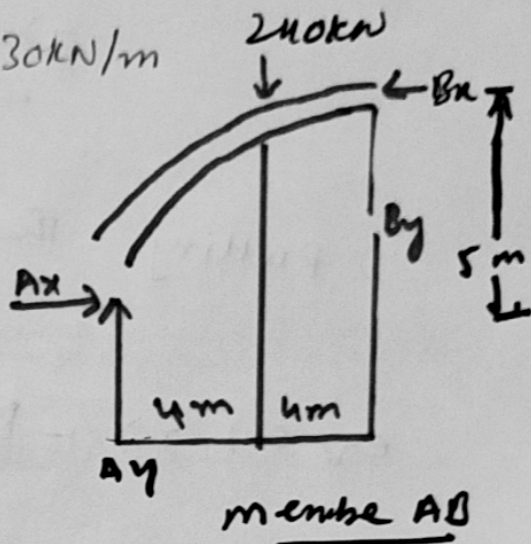 30KN/m
240KN
Bx
By
5m
Ax
4m
4m
Ay
membe AB